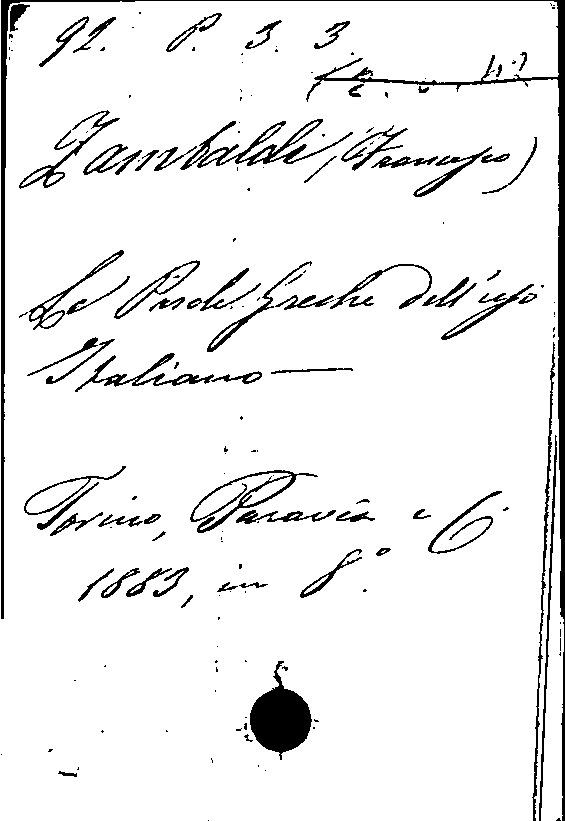 92. P. 3. 3.
Zambaldi (Francesco)
Le Parole Greche dell'uso
Italiano —
Torino, Paravia e C.
1883, in 8.°